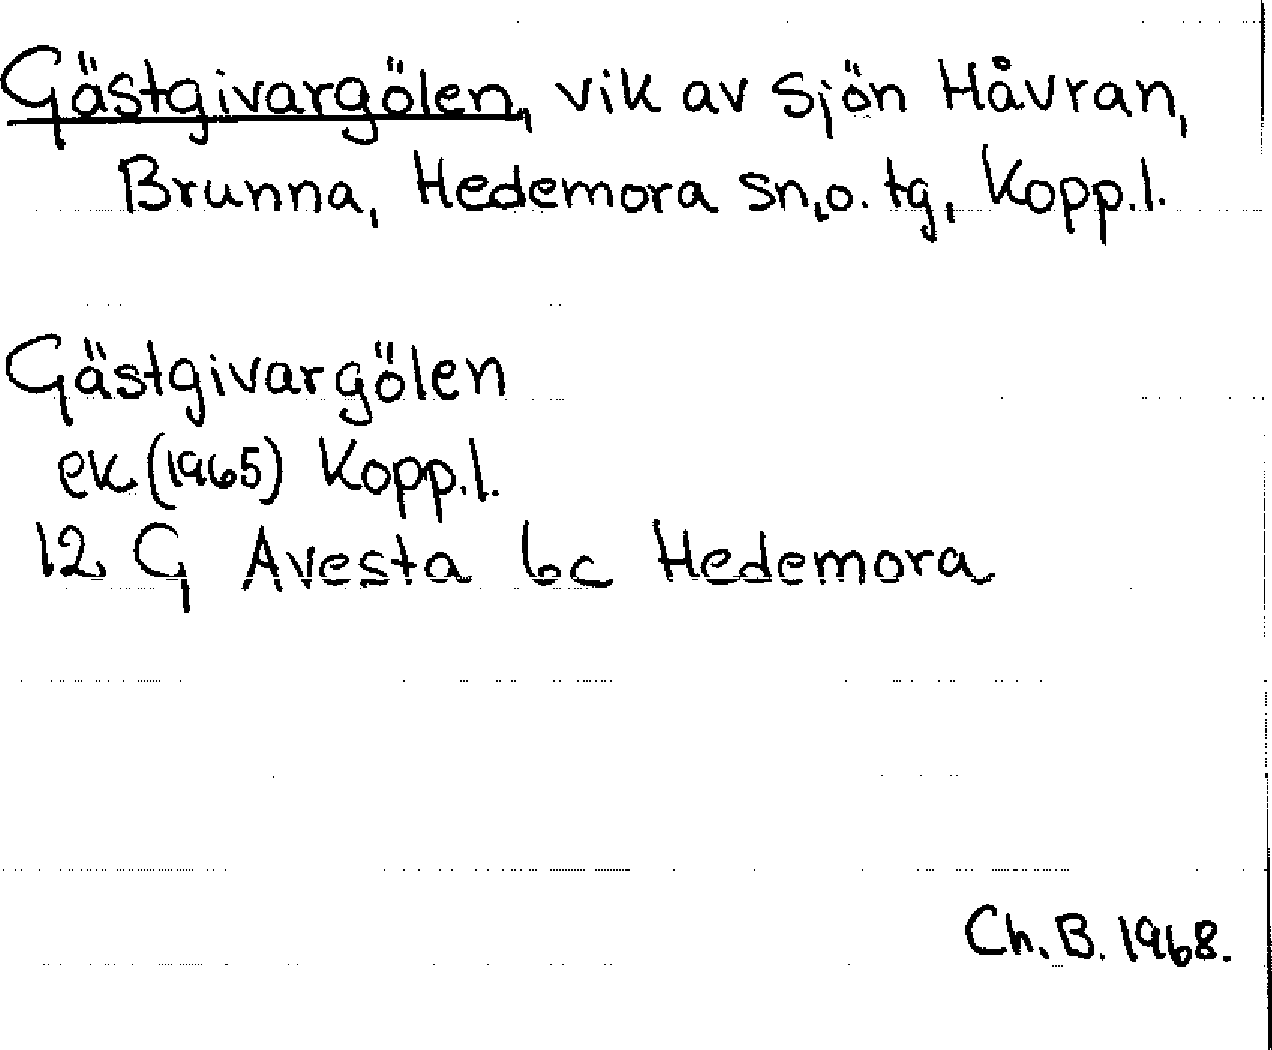 Gästgivargölen, vik av sjön Håvran,
Brunna, Hedemora sn,o. tg, Kopp.l.
Gästgivargölen
ek (1965) Kopp.l.
12 G Avesta 6c Hedemora
Ch. B. 1968.